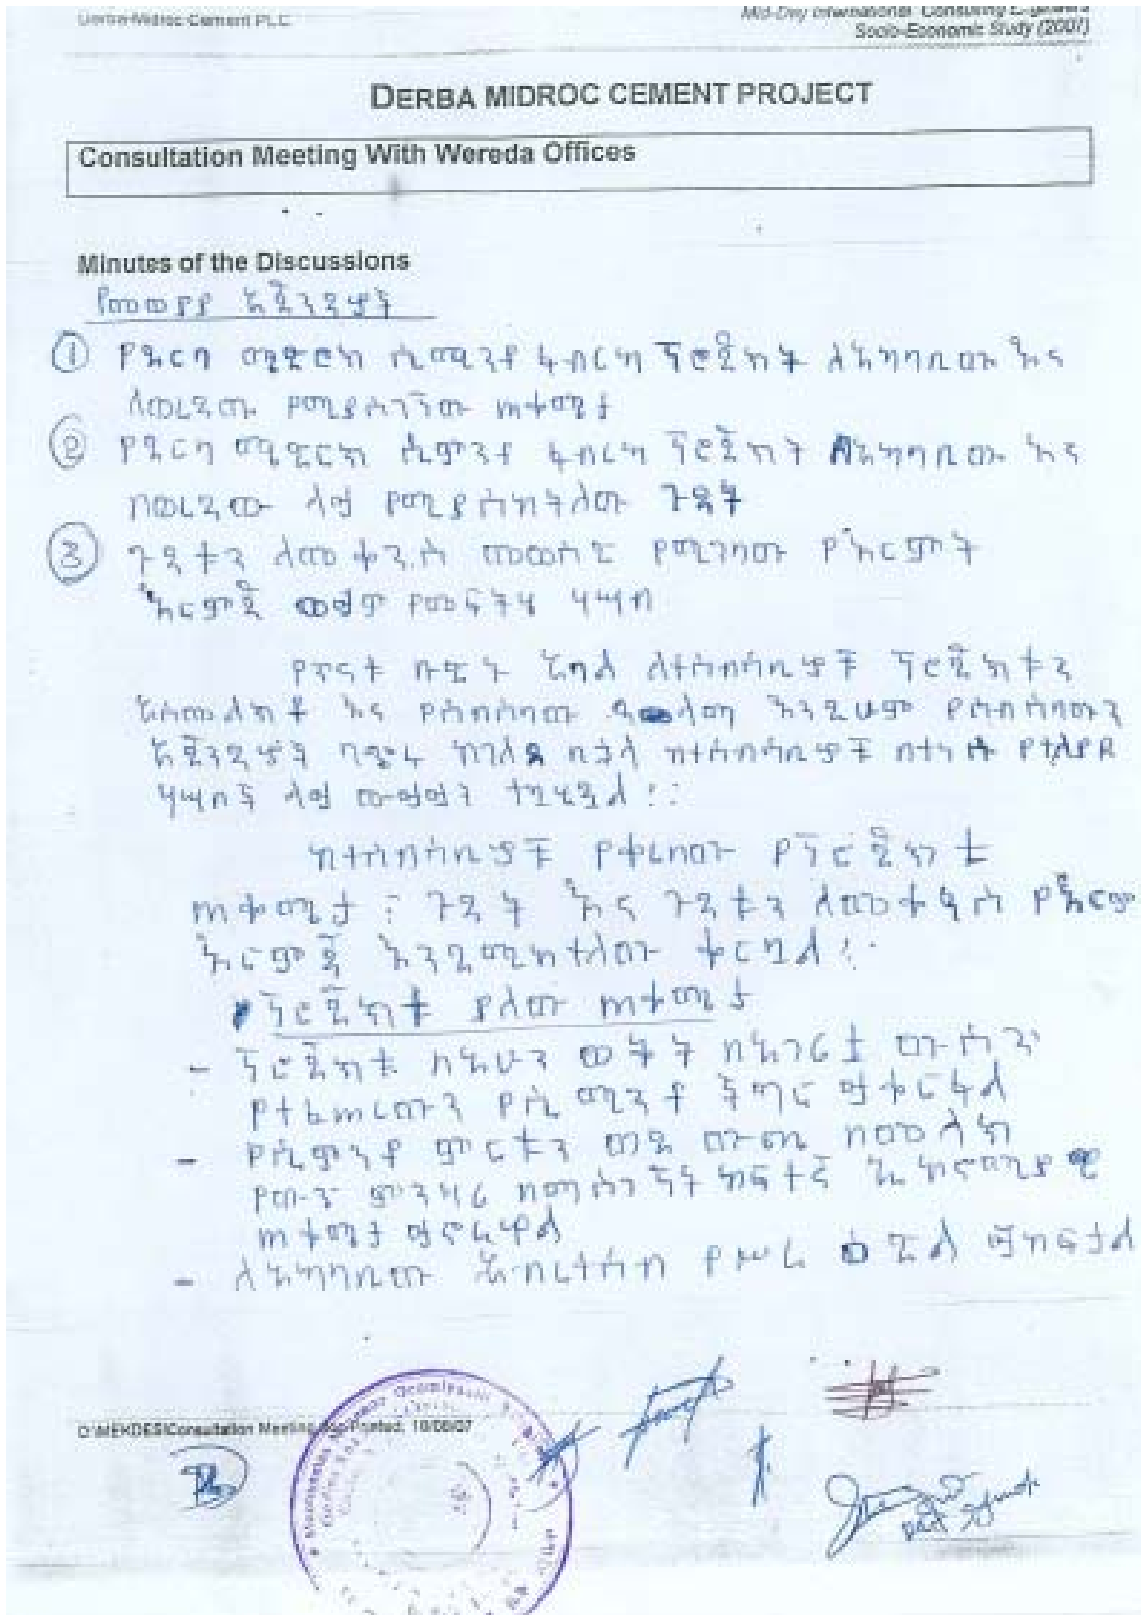 Derba-Midroc Cement PLC
Mid-Day International Consulting Engineers
Socio-Economic Study (2007)
DERBA MIDROC CEMENT PROJECT
Consultation Meeting With Wereda Offices
Minutes of the Discussions
የመወያያ አጀንዳዎች
① የደርባ ሚድሮክ ሲሚንቶ ፋብሪካ ፕሮጀክት ለአካባቢው እና
ለወረዳው የሚያስገኘው ጠቀሜታ
② የደርባ ሚድሮክ ሲምንቶ ፋብሪካ ፕሮጀክት በአካባቢው እና
በወረዳው ላይ የሚያስከትለው ጉዳት
③ ጉዳቱን ለመቀነስ መወሰድ የሚገባው የእርምት
እርምጃ ወይም የመፍትሄ ሃሣብ
የጥናት ቡድኑ አባል ለተሰብሳቢዎች ፕሮጀክቱን
አስመልክቶ እና የስብሰባው ዓላማ እንዲሁም የስብሰባውን
አጀንዳዎች ባጭሩ ከገለጸ በኃላ ከተሰብሳቢዎች በተነሱ የተለያዩ
ሃሣቦች ላይ ውይይት ተካሂዷል ፡፡
ከተሰብሳቢዎች የቀረበው የፕሮጀክቱ
ጠቀሜታ ፡ ጉዳት እና ጉዳቱን ለመቀነስ የእርምት
እርምጃ እንደሚከተለው ቀርቧል ፡፡
ፕሮጀክቱ ያለው ጠቀሜታ
- ፕሮጀክቱ በአሁን ወቅት በአገሪቱ ውስጥ
የተፈጠረውን የሲሚንቶ ችግር ይቀርፋል
- የሲምንቶ ምርቱን ወደ ውጪ በመላክ
የውጭ ምንዛሪ በማስገኘት ከፍተኛ ኢኮኖሚያዊ
ጠቀሜታ ይኖረዋል
- ለአካባቢው ሕብረተሰብ የሥራ ዕድል ይከፍታል
D:\MEKDES\Consultation Meeting Printed, 10/08/07